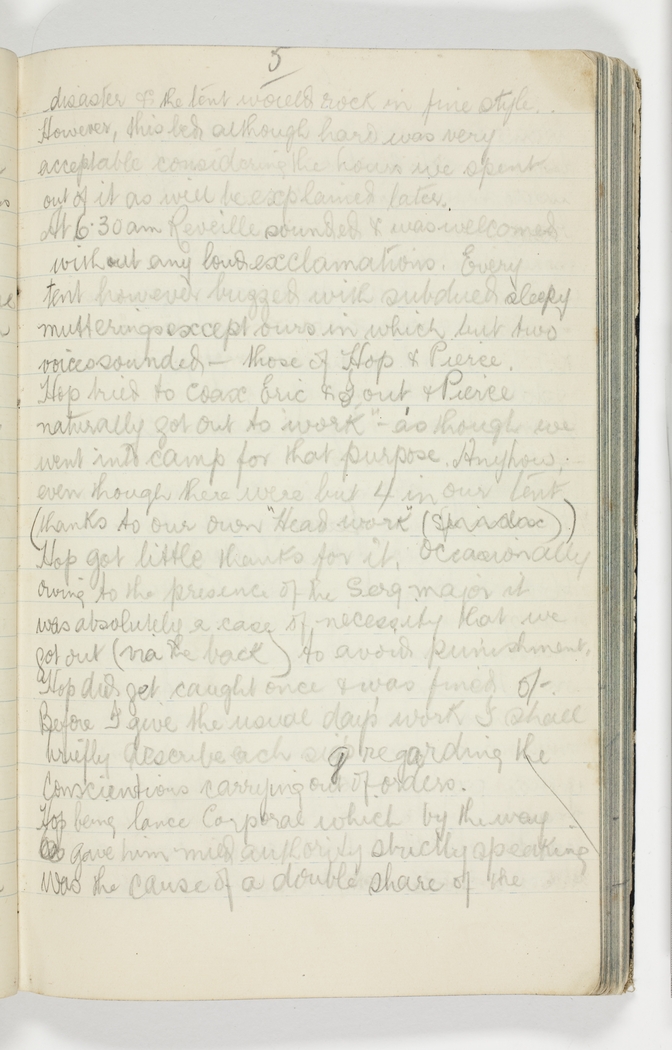 5
disaster & the tent would rock in fine style.
However, this bed although hard was very
acceptable considering the hours we spent
out of it as will be explained later.
At 6.30am Reveille sounded & was welcomed
without any loud exclamations. Every
tent however buzzed with subdued sleepy
mutterings except ours in which but two
voices sounded — those of Hop & Pierce.
Hop tried to coax Eric & I out & Pierce
naturally got out to "work" - as though we
went into camp for that purpose. Anyhow,
even though there were but 4 in our tent
(thanks to our own "Head work" ( ))
Hop got little thanks for it. Occasionally
owing to the presence of the Serg-major it
was absolutely a case of necessity that we
got out (via the back) to avoid punishment.
Hop did get caught once & was fined 5/-.
Before I give the usual day's work I shall
briefly describe each regarding the
Conscientious carrying out of orders.
Hop being lance Corporal which by the way
gave him mild authority strictly speaking
was the cause of a double share of the